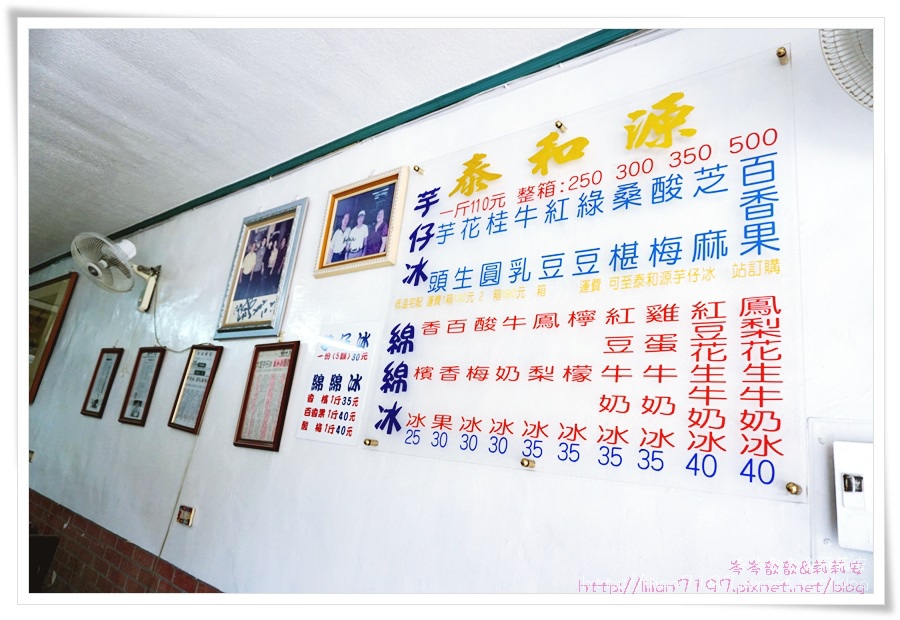 泰和源
芋仔冰
一斤110元 整箱:250 300 350 500
芋頭
花生
桂圓
牛乳
紅豆
綠豆
桑椹
酸梅
芝麻
百香果
低溫宅配 運費1箱 元 2 箱 元 箱 運費 可至泰和源芋仔冰 站訂購
綿綿冰
香檳冰 25
百香果 30
酸梅冰 30
牛奶冰 30
鳳梨冰 35
檸檬冰 35
紅豆牛奶冰 35
雞蛋牛奶冰 35
紅豆花生牛奶冰 40
鳳梨花生牛奶冰 40
仔冰
一份(5顆)30元
綿綿冰
香檳1斤35元
百香果1斤40元
酸梅1斤40元
岑岑歆歆&莉莉安
http://lilian7197.pixnet.net/blog